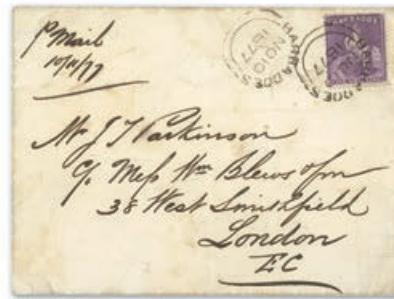 p Mail
10/11/77
BARBADOS
NO 10
1877
BARBADOS
Mr J T Parkinson
c/o Mess Wm Blews & Son
38 West Smithfield
London
EC